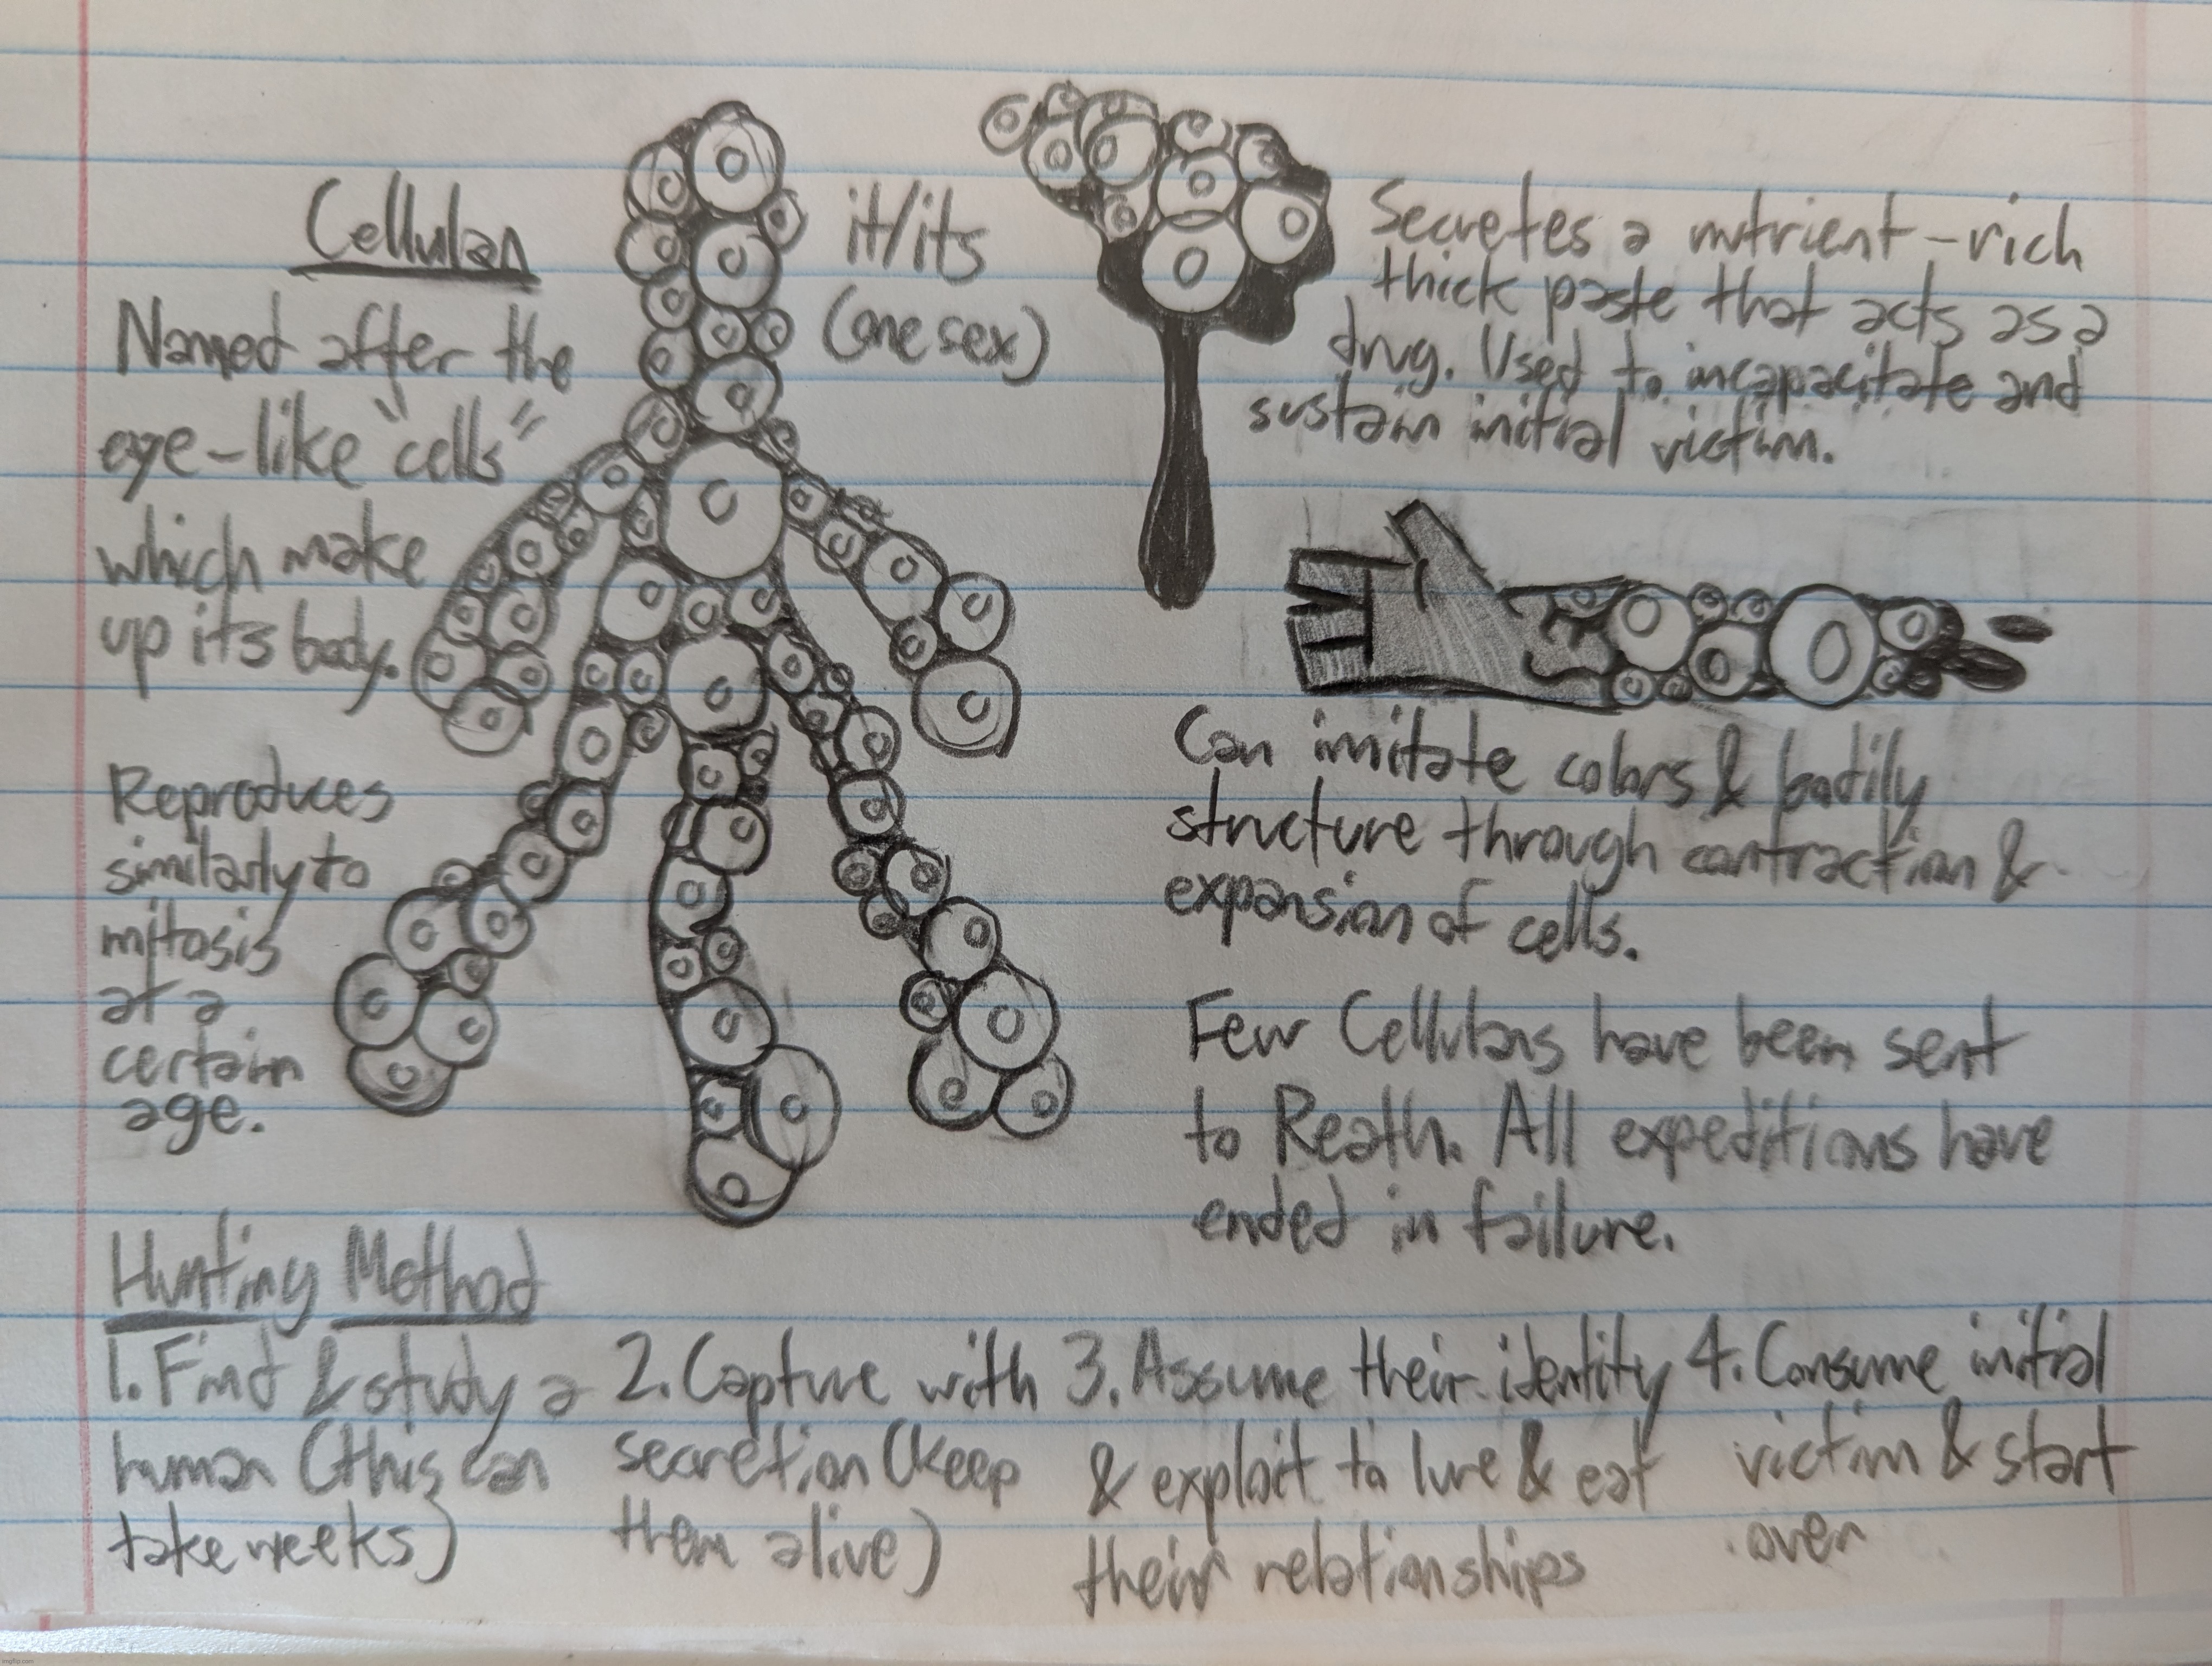 Cellulan
it/its
(one sex)
Named after the
eye-like "cells"
which make
up its body.
Reproduces
similarly to
mitosis
at a
certain
age.
Secretes a nutrient-rich
thick paste that acts as a
drug. Used to incapacitate and
sustain initial victim.
Can imitate colors & bodily
structure through contraction &
expansion of cells.
Few Cellulans have been sent
to Reath. All expeditions have
ended in failure.
Hunting Method
1. Find & study a
human (this can
take weeks)
2. Capture with
secretion (keep
them alive)
3. Assume their identity
& exploit to lure & eat
their relationships
4. Consume initial
victim & start
over
imgflip.com